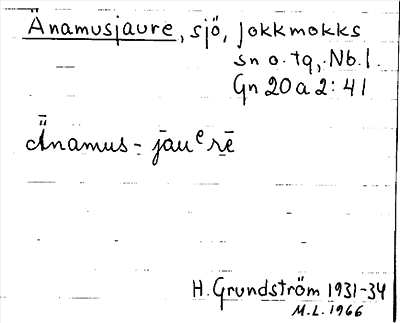 Änamusjaure, sjö, Jokkmokks
sn o. tq, Nb. l.
Gn 20 a 2:41
Ǟnamus-jāuᵉrē
H. Grundström 1931-34
M.L. 1966